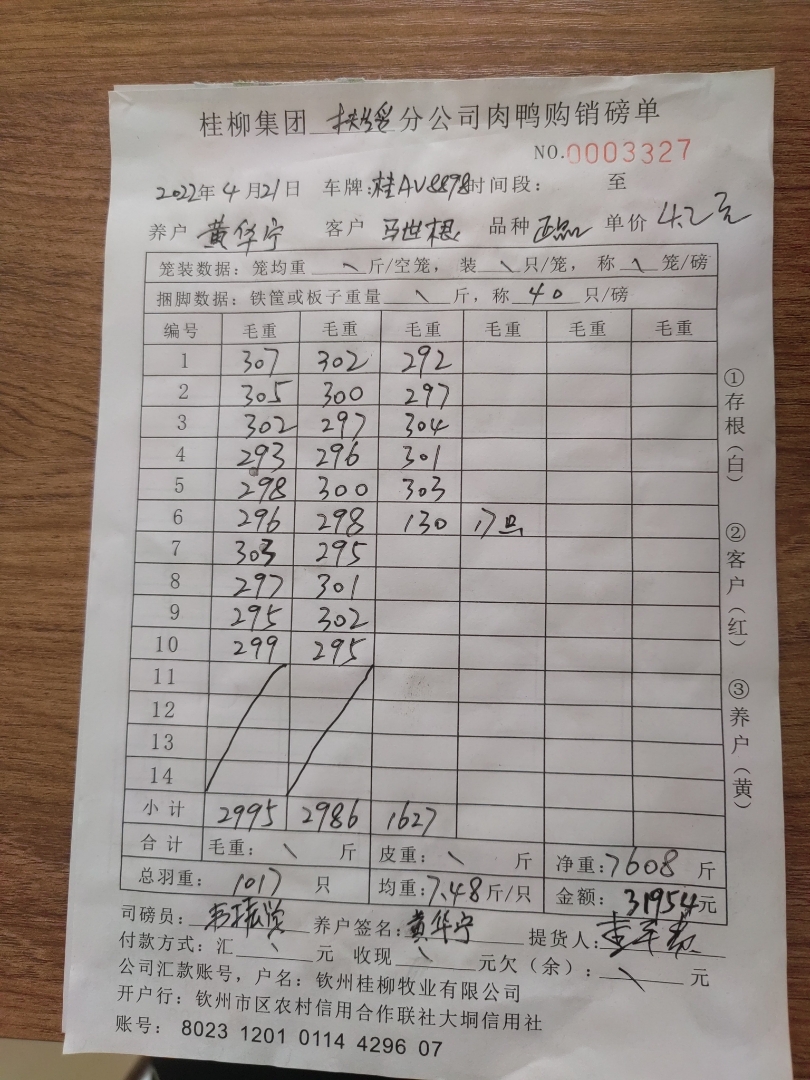 桂柳集团 扶绥 分公司肉鸭购销磅单
NO.0003327
2022年4月21日 车牌:桂AV8898 时间段: 至
养户 黄华宁 客户 马世根 品种 正品 单价 4.2元
笼装数据:笼均重 \ 斤/空笼,装 \ 只/笼,称 \ 笼/磅
捆脚数据:铁筐或板子重量 \ 斤,称 40 只/磅
编号 毛重 毛重 毛重 毛重 毛重 毛重
1 307 302 292
2 305 300 297
3 302 297 304
4 293 296 301
5 298 300 303
6 296 298 130 17只
7 303 295
8 297 301
9 295 302
10 299 295
11
12
13
14
小计 2995 2986 1627
合计 毛重: \ 斤 皮重: \ 斤 净重:7608 斤
总羽重: 1017 只 均重:7.48斤/只 金额: 31954元
司磅员: 养户签名:黄华宁 提货人:
付款方式:汇 \ 元 收现 \ 元欠(余): \ 元
公司汇款账号,户名:钦州桂柳牧业有限公司
开户行:钦州市区农村信用合作联社大垌信用社
账号: 8023 1201 0114 4296 07
①存根(白) ②客户(红) ③养户(黄)